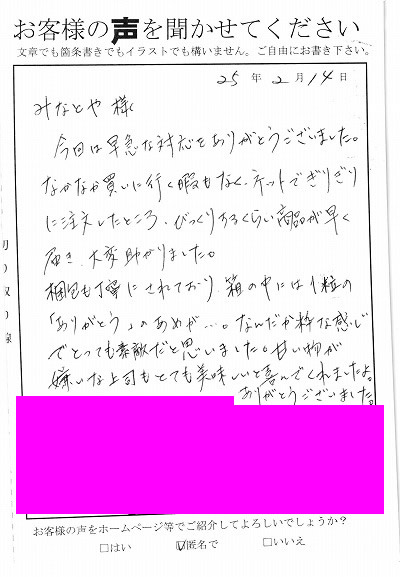 お客様の声を聞かせてください
文章でも箇条書きでもイラストでも構いません。ご自由にお書き下さい。
25年2月14日
みなとや 様
今回は早急な対応をありがとうございました。
なかなか買いに行く暇もなく、ネットでぎりぎり
に注文したところ、びっくりするくらい商品が早く
届き、大変助かりました。
梱包も丁寧にされており、箱の中には1粒の
「ありがとう」のあめが…。なんだか粋な感じ
でとっても素敵だと思いました。甘い物が
嫌いな上司もとても美味しいと喜んでくれましたよ。
ありがとうございました。
切り取り線
お客様の声をホームページ等でご紹介してよろしいでしょうか？
□はい ☑匿名で □いいえ